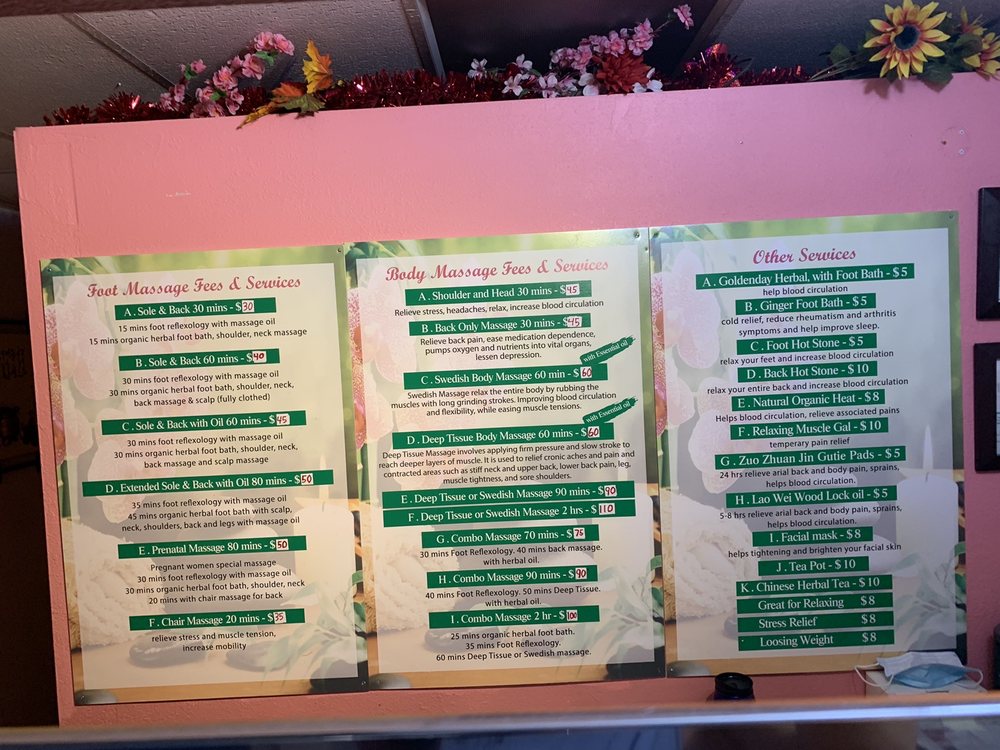 Foot Massage Fees & Services
A . Sole & Back 30 mins - $30
15 mins foot reflexology with massage oil
15 mins organic herbal foot bath, shoulder, neck massage
B . Sole & Back 60 mins - $40
30 mins foot reflexology with massage oil
30 mins organic herbal foot bath, shoulder, neck,
back massage & scalp (fully clothed)
C . Sole & Back with Oil 60 mins - $45
30 mins foot reflexology with massage oil
30 mins organic herbal foot bath, shoulder, neck,
back massage and scalp massage
D . Extended Sole & Back with Oil 80 mins - $50
35 mins foot reflexology with massage oil
45 mins organic herbal foot bath with scalp,
neck, shoulders, back and legs with massage oil
E . Prenatal Massage 80 mins - $50
Pregnant women special massage
30 mins foot reflexology with massage oil
30 mins organic herbal foot bath, shoulder, neck
20 mins with chair massage for back
F . Chair Massage 20 mins - $35
relieve stress and muscle tension,
increase mobility
Body Massage Fees & Services
A . Shoulder and Head 30 mins - $45
Relieve stress, headaches, relax, increase blood circulation
B . Back Only Massage 30 mins - $45
Relieve back pain, ease medication dependence,
pumps oxygen and nutrients into vital organs,
lessen depression.
with Essential oil
C . Swedish Body Massage 60 min - $60
Swedish Massage relax the entire body by rubbing the
muscles with long grinding strokes. Improving blood circulation
and flexibility, while easing muscle tensions.
with Essential oil
D . Deep Tissue Body Massage 60 mins - $60
Deep Tissue Massage involves applying firm pressure and slow stroke to
reach deeper layers of muscle. It is used to relief cronic aches and pain and
contracted areas such as stiff neck and upper back, lower back pain, leg,
muscle tightness, and sore shoulders.
E . Deep Tissue or Swedish Massage 90 mins - $90
F . Deep Tissue or Swedish Massage 2 hrs - $110
G . Combo Massage 70 mins - $75
30 mins Foot Reflexology. 40 mins back massage.
with herbal oil.
H . Combo Massage 90 mins - $90
40 mins Foot Reflexology. 50 mins Deep Tissue.
with herbal oil.
I . Combo Massage 2 hr - $100
25 mins organic herbal foot bath.
35 mins Foot Reflexology.
60 mins Deep Tissue or Swedish massage.
Other Services
A . Goldenday Herbal, with Foot Bath - $ 5
help blood circulation
B . Ginger Foot Bath - $ 5
cold relief, reduce rheumatism and arthritis
symptoms and help improve sleep.
C . Foot Hot Stone - $ 5
relax your feet and increase blood circulation
D . Back Hot Stone - $ 10
relax your entire back and increase blood circulation
E . Natural Organic Heat - $ 8
Helps blood circulation, relieve associated pains
F . Relaxing Muscle Gal - $ 10
temporary pain relief
G . Zuo Zhuan Jin Gutie Pads - $ 5
24 hrs relieve arial back and body pain, sprains,
helps blood circulation.
H . Lao Wei Wood Lock oil - $ 5
5-8 hrs relieve arial back and body pain, sprains,
helps blood circulation.
I . Facial mask - $ 8
helps tightening and brighten your facial skin
J . Tea Pot - $ 10
K . Chinese Herbal Tea - $ 10
Great for Relaxing $ 8
Stress Relief $ 8
Loosing Weight $ 8